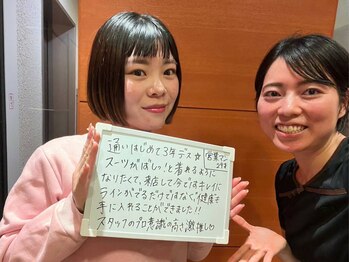 通いはじめて3年デス☆
営業マン
スーツがばしっ!と着れるように
なりたくて、来店して今ではキレイに
ラインがでるだけではなく、健康も
手に入れることができました!!
スタッフのプロ意識の高さ激推し